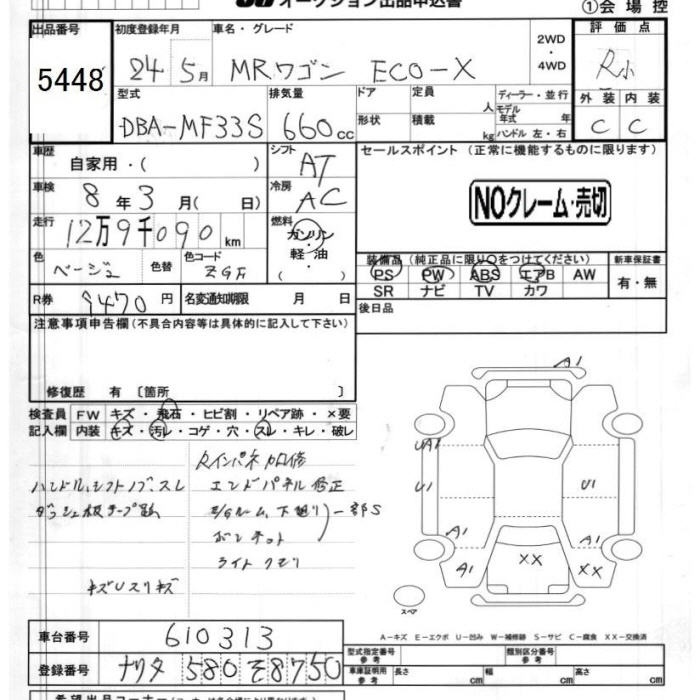 オークション出品申込書
①会場控
出品番号 初度登録年月 車名・グレード 2WD・4WD 評価点
5448 24年5月 MRワゴン ECO-X R小
型式 排気量 ドア 定員 人 ディーラー・並行 外装 内装
DBA-MF33S 660cc 形状 積載 kg モデル年式 年 ハンドル 左・右 C C
車歴 自家用・( ) シフト AT セールスポイント (正常に機能するものに限ります)
車検 8年3月( 日) 冷房 AC NOクレーム・売切
走行 12万9千090km 燃料 ガソリン・軽油・( )
色 ベージュ 色替 色コード ZGF
装備品 (純正品に限り○をつけてください) 新車保証書
PS PW ABS エアB AW 有・無
SR ナビ TV カワ
R券 9470円 名変通知期限 月 日 後日品
注意事項申告欄(不具合内容等は具体的に記入して下さい)
修復歴 有 〔箇所 〕
検査員 FW キズ・飛石・ヒビ割・リペア跡・×要
記入欄 内装 キズ・汚レ・コゲ・穴・スレ・キレ・破レ
Rインパネ加修
ハンドル、シフトノブ、スレ エンドパネル修正
ダッシュ板テープ跡 E/Gルーム、下廻り 一部S
ボンネット
ライトクモリ
キズUスリキズ
A1
UA1
U1 U1
A1 A1
A1 XX XX
スペア
A-キズ E-エクボ U-凹み W-補修跡 S-サビ C-腐食 XX-交換済
車台番号 610313 型式指定番号 参考 類別区分番号 参考
登録番号 ナリタ 580 そ 8750 車庫証明用 参考 長さ cm 幅 cm 高さ cm